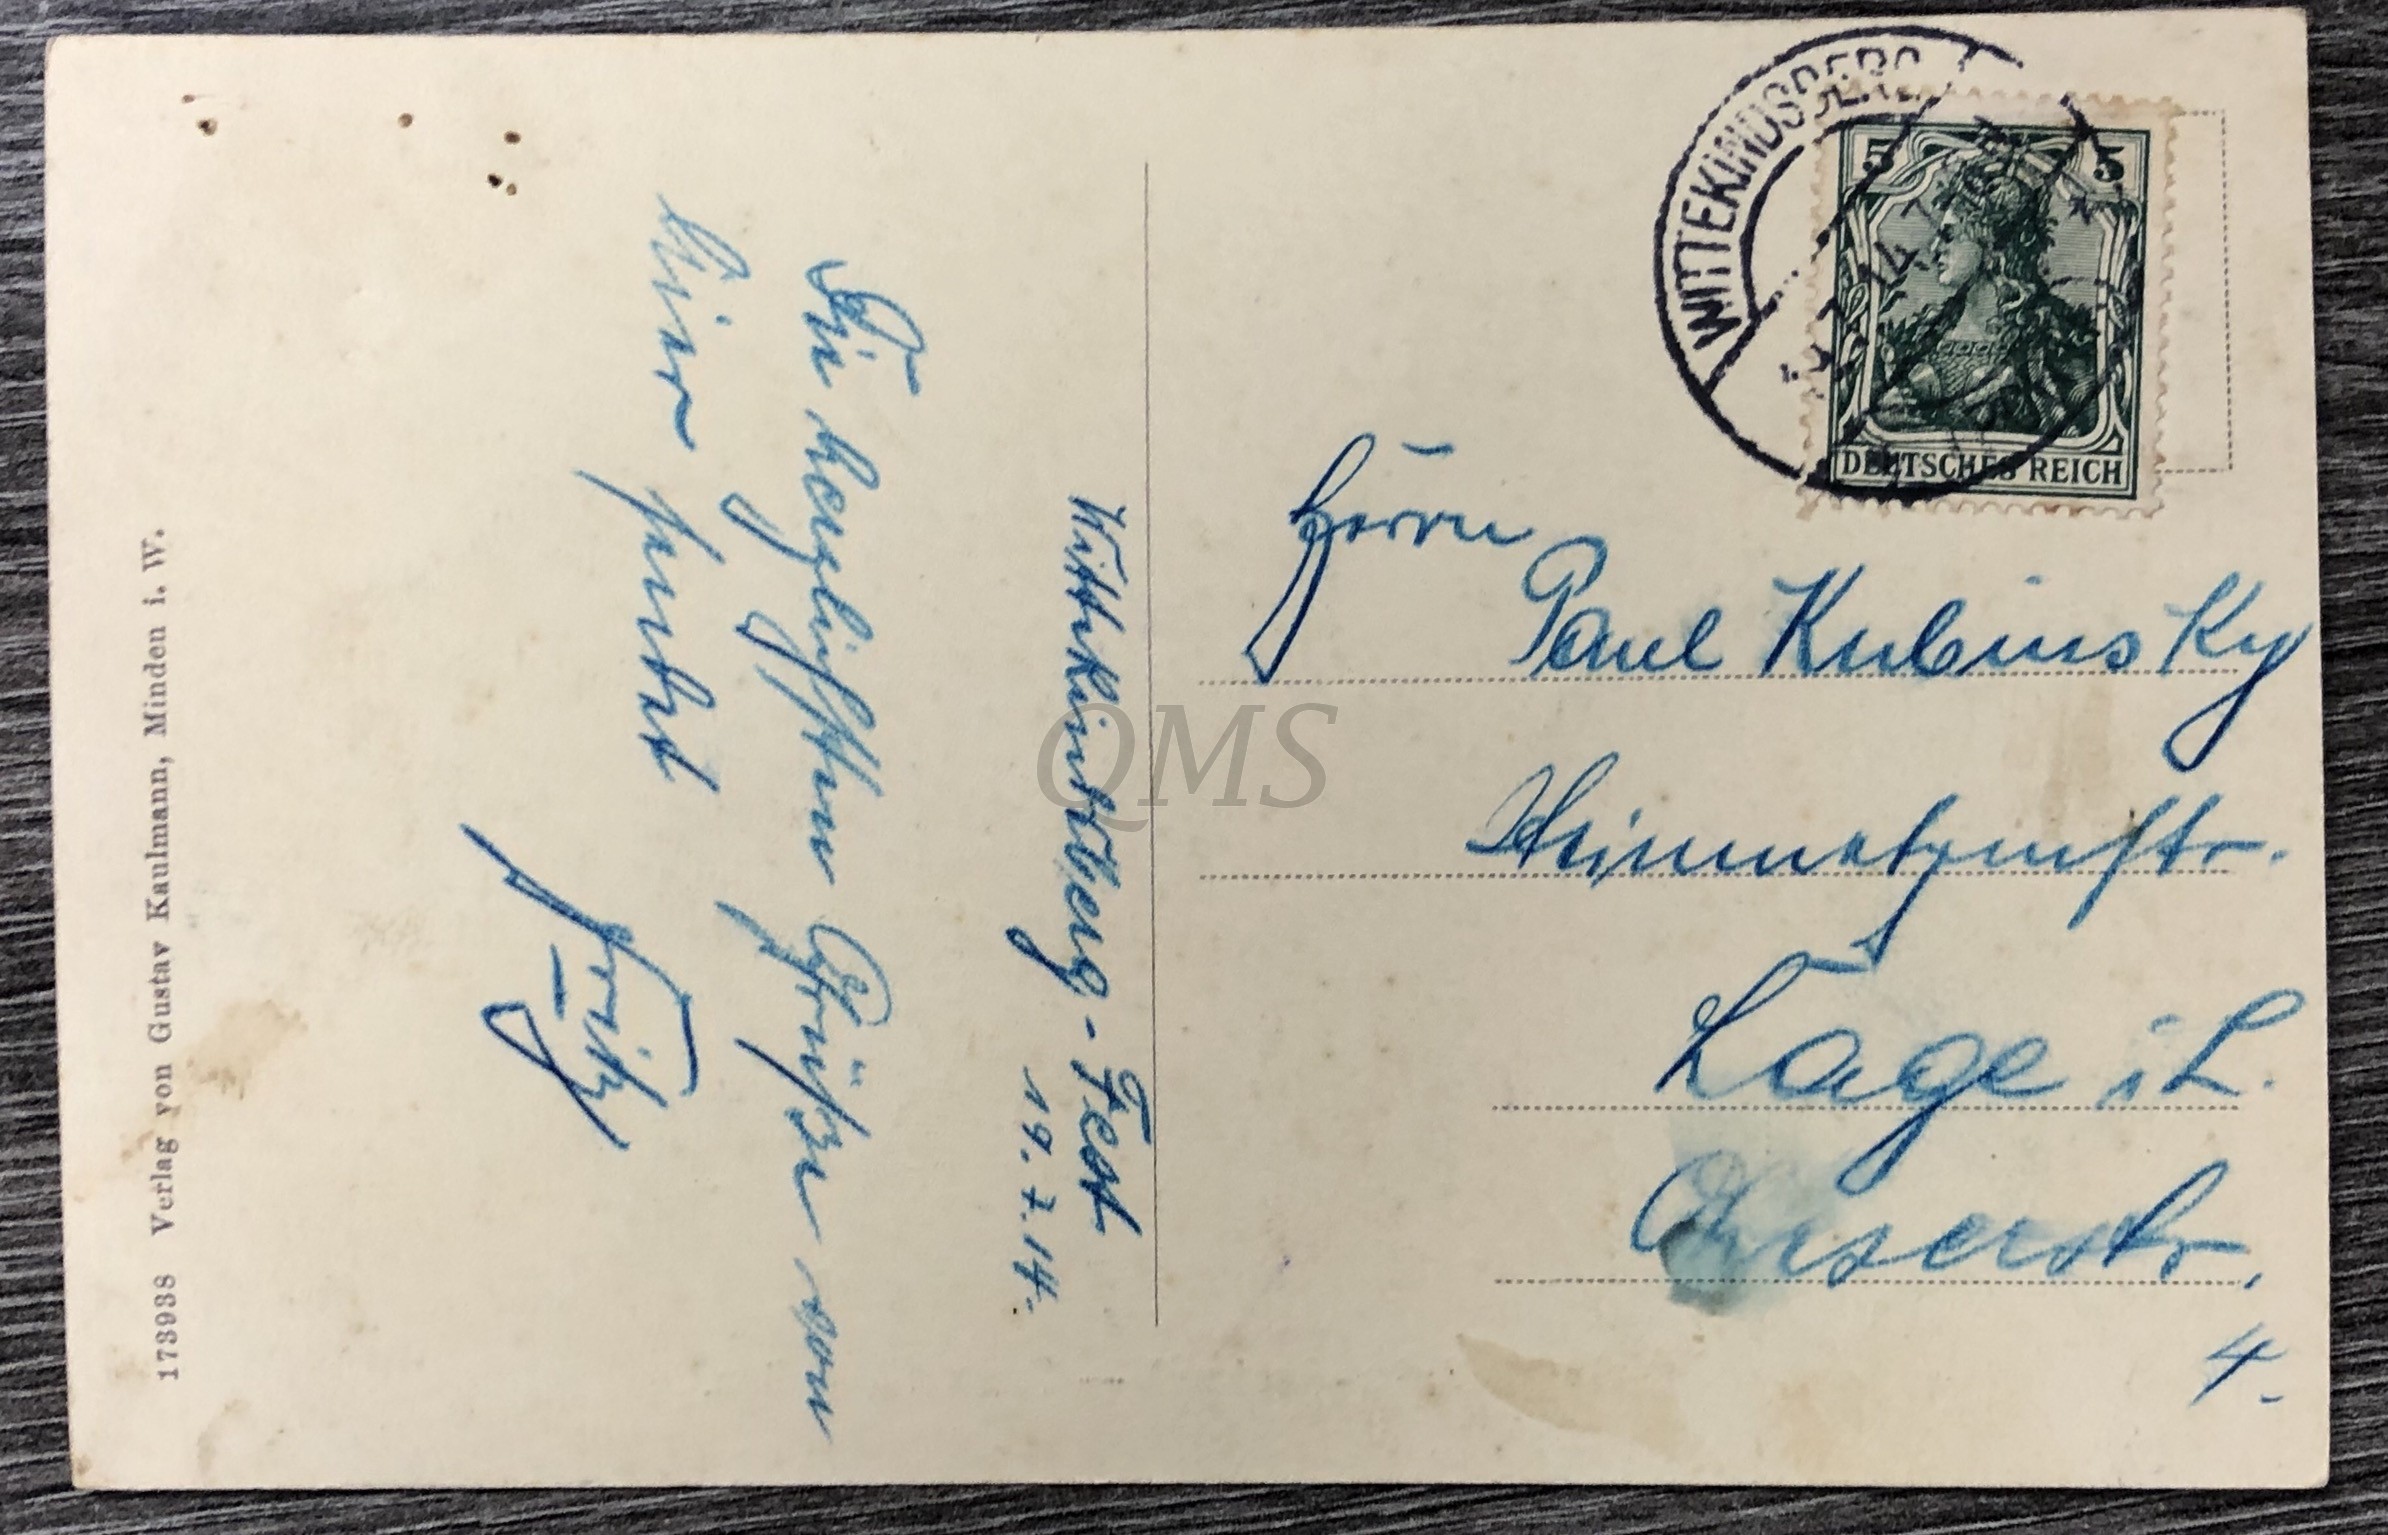 Wittekindsberg-Fest
19.7.14.
Die herzlichsten Grüße von
hier sendet
Fritz
173938 Verlag von Gustav Kaulmann, Minden i. W.
WITTEKINDSBERG
5 5
DEUTSCHES REICH
Herrn
Paul Kubinsky
Lage i. L.
4.
QMS